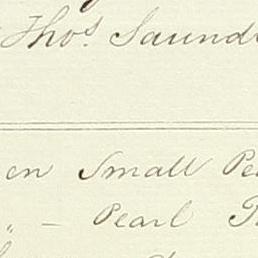 Thos. Saund
en Small Pe
" - Pearl